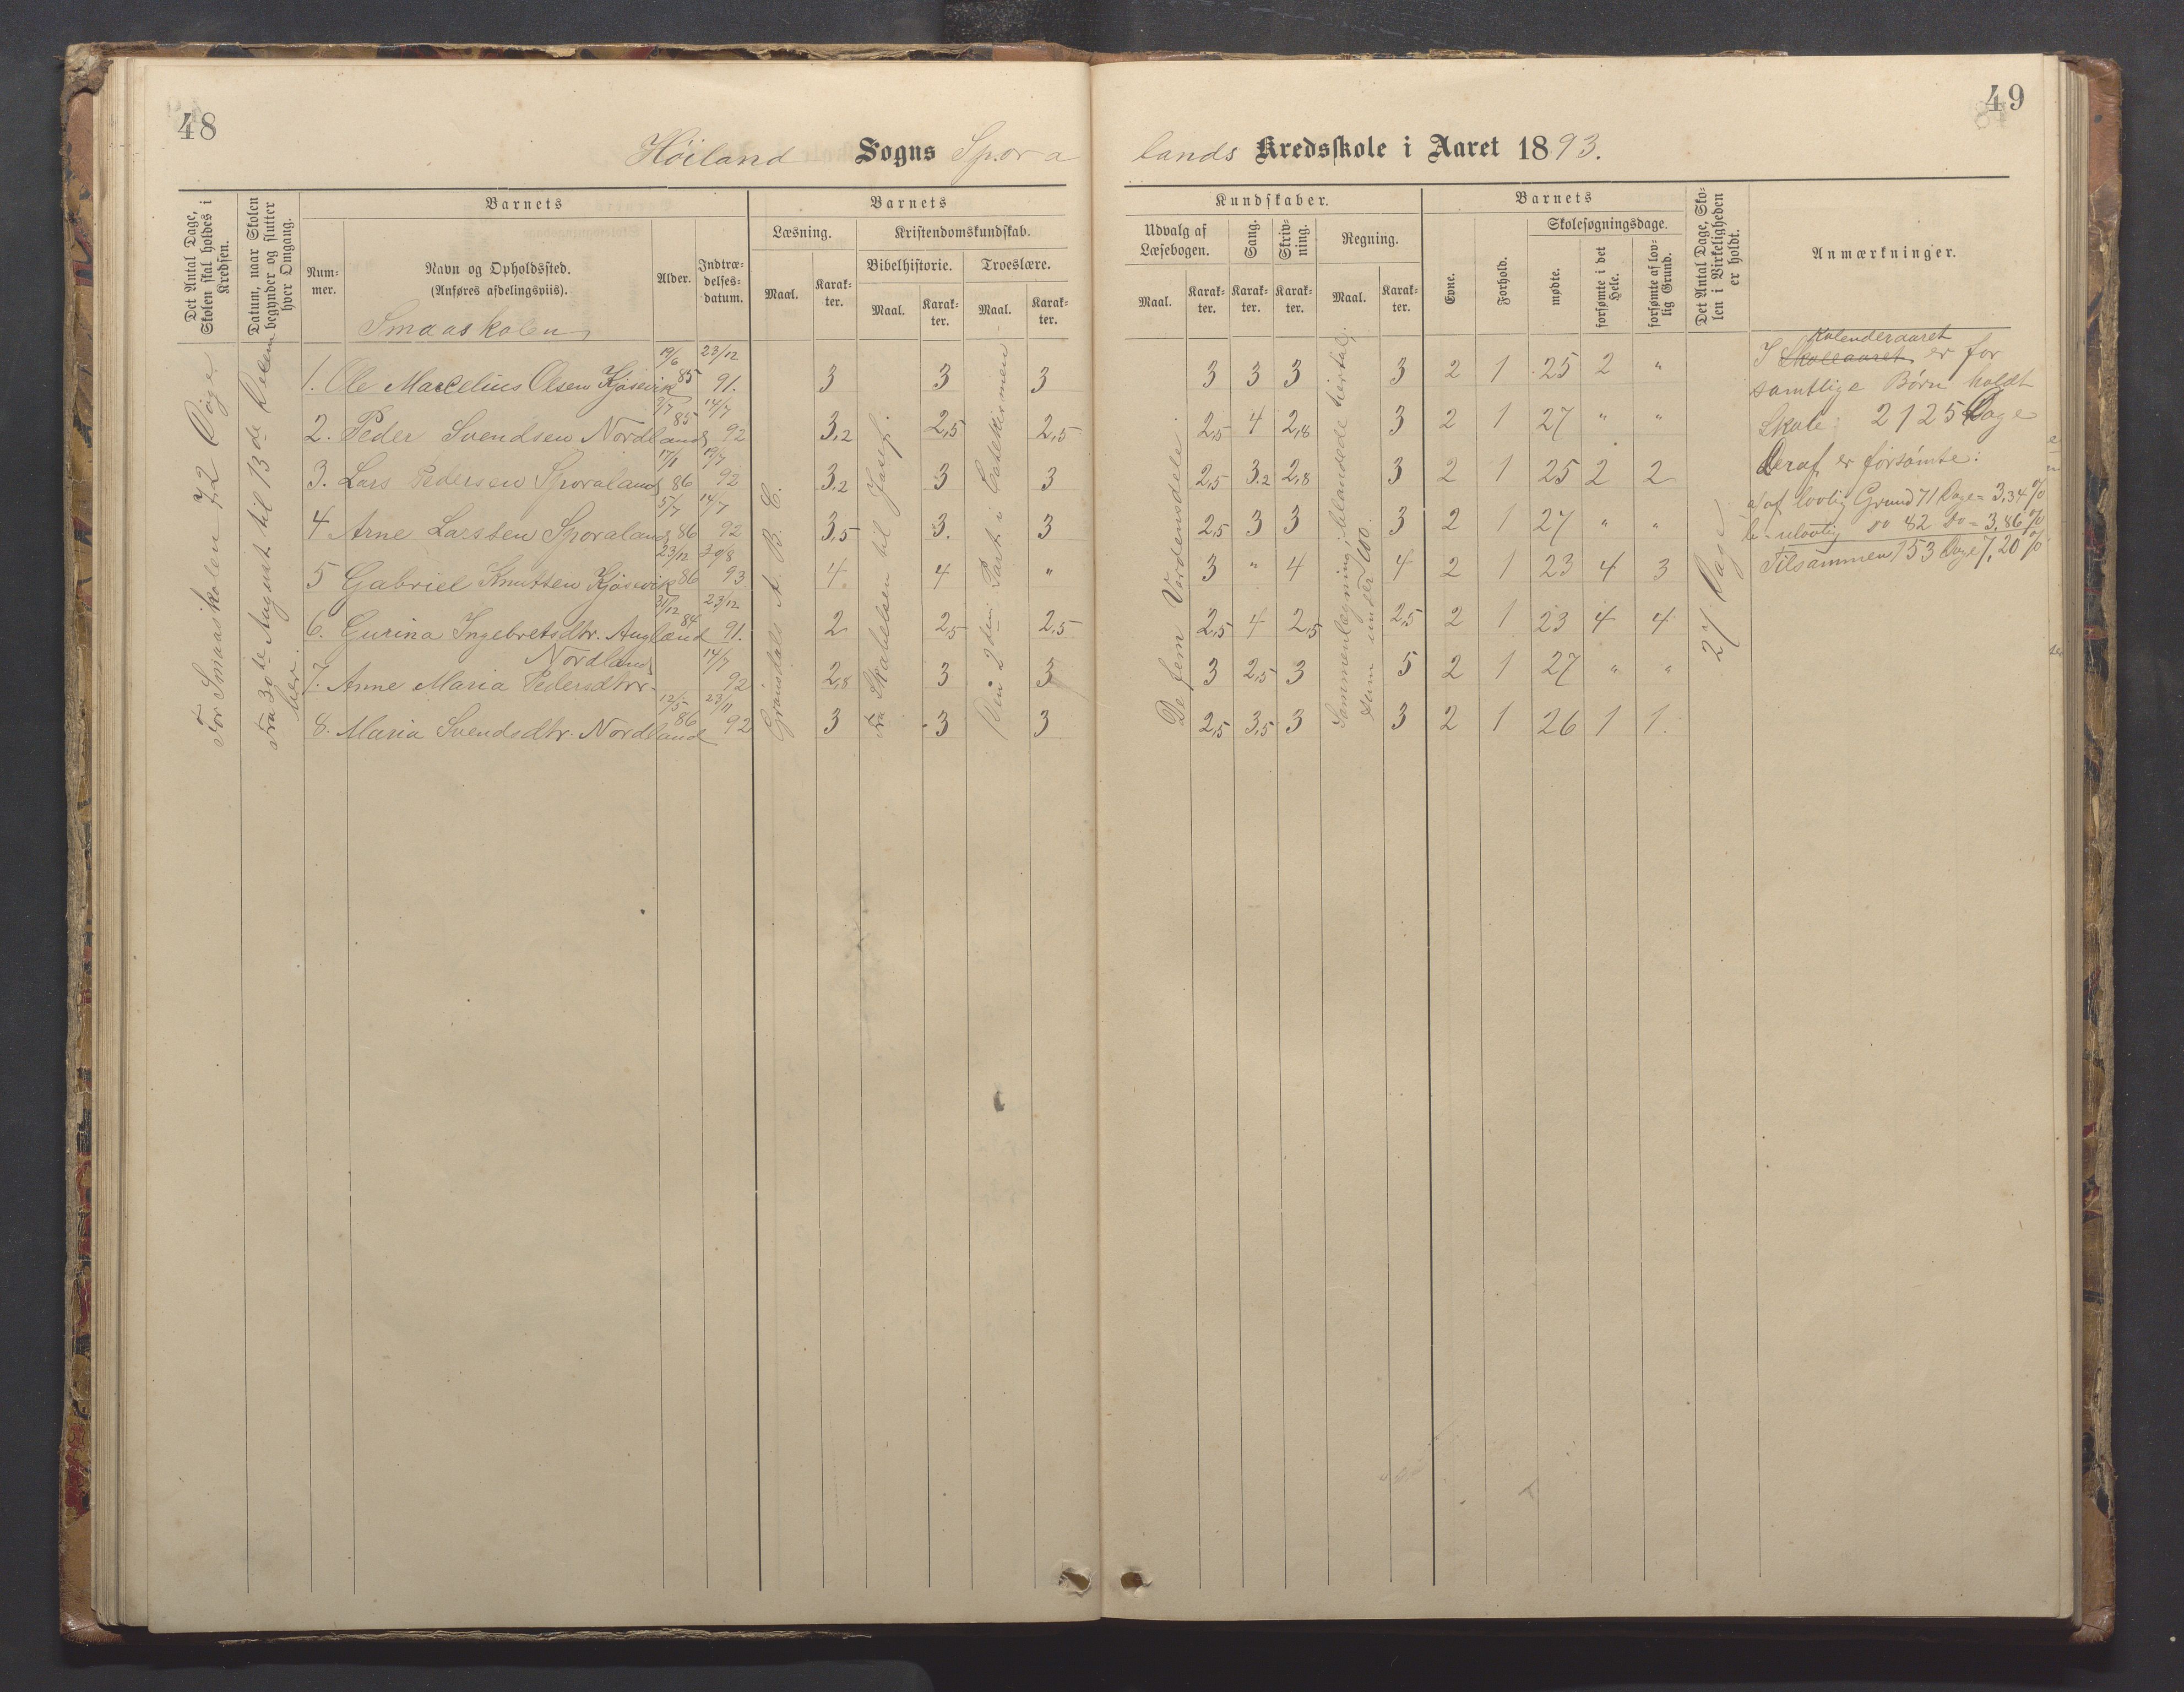 48
49
Höiland Sogns Spora lands Kredsskole i Aaret 1893.
Det Antal Dage, Skolen skal holdes i Kredsen.
Datum, naar Skolen begynder og slutter hver Omgang.
Barnets
Num-mer.
Navn og Opholdssted.
(Anføres afdelingsviis).
Alder.
Indtræ-delses-datum.
Barnets
Læsning.
Maal.
Karak-ter.
Kristendomskundskab.
Bibelhistorie.
Maal.
Karak-ter.
Troeslære.
Maal.
Karak-ter.
Kundskaber.
Udvalg af Læsebogen.
Maal.
Karak-ter.
Sang.
Karak-ter.
Skriv-ning.
Karak-ter.
Regning.
Maal.
Karak-ter.
Barnets
Evne.
Forhold.
Skolesøgningsdage.
mødte.
forsømte i det Hele.
forsømte af lov-lig Grund.
Det Antal Dage, Sko-len i Virkeligheden er holdt.
Anmærkninger.
Smaaskolen
For Smaaskolen 72 Dage
Fra 30te August til 13de Decem
ber.
Grönsdals A. B. C.
Fra Skabelsen til Josef.
Din 2den Part i Catekismen
De fem Verdensdele.
Sammenlægning, i blandede tiertal,
sum under 100.
27 Dage
1. Ole Marcelius Olsen Kjosevik 19/6 85 23/12 91. 3 3 3 3 3 3 3 2 1 25 2 "
2. Peder Svendsen Nordland 9/7 85 14/7 92 3,2 2,5 2,5 2,5 4 2,8 3 2 1 27 " "
3. Lars Pedersen Sporaland 17/1 86 19/7 92 3,2 3 3 2,5 3,2 2,8 3 2 1 25 2 2
4 Arne Larssen Sporaland 5/7 86 14/7 92 3,5 3. 3 2,5 3 3 3 2 1 27 " "
5 Gabriel Knutsen Kjosevik 23/12 86 30/8 93 4 4 " 3 " 4 4 2 1 23 4 3
6. Gurina Ingebretsdtr. Augland 31/12 84 23/12 91. 2 2,5 2,5 2,5 4 2,5 2,5 2 1 23 4 4
7. Anne Maria Pedersdtr. Nordland 14/7 92 2,8 3 3 3 2,5 3 5 2 1 27 " "
8. Maria Svendsdtr. Nordland 12/5 86 23/11 92 3 3 3 2,5 3,5 3 3 2 1 26 1 1.
Kalenderaaret
I Skoleaaret er for
samtlige Börn holdt
Skole: 2125 Dage
Deraf er forsömte:
a. af lovlig Grund 71 Dage = 3,34%
b. - ulovlig do 82 Do = 3,86%
Tilsammen 153 Dage 7,20%.